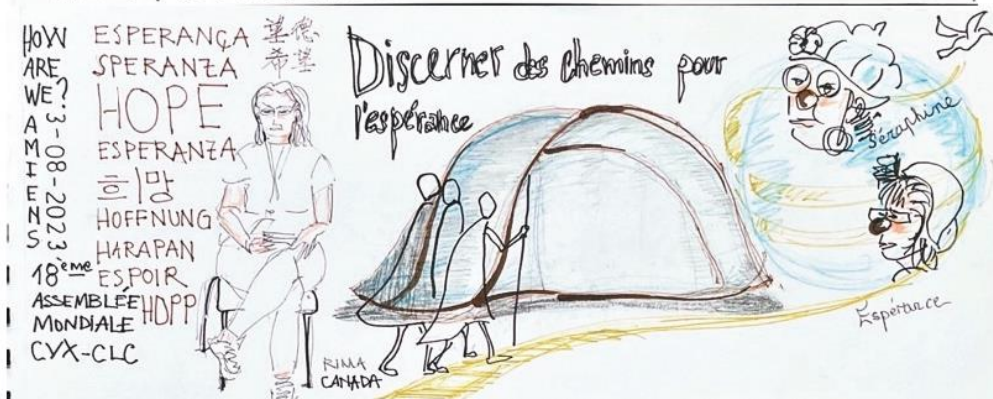 HOW
ARE
WE?
AMIENS
3-08-2023
18ème
ASSEMBLÉE
MONDIALE
CVX-CLC
ESPERANÇA 望德
SPERANZA 希望
HOPE
ESPERANZA
희망
HOFFNUNG
HARAPAN
ESPOIR
HOPP
RIMA
CANADA
Discerner des chemins pour
l'espérance
Séraphine
Espérance